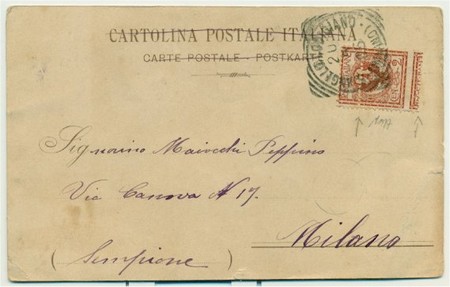 CARTOLINA POSTALE ITALIANA
CARTE POSTALE - POSTKARTE
Signorino Maiocchi Peppino
Via Canova N 17.
Milano
(Sempione)